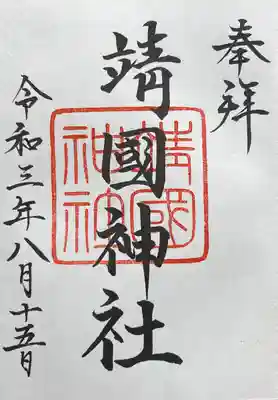 奉拝
靖國神社
靖國神社
令和三年八月十五日